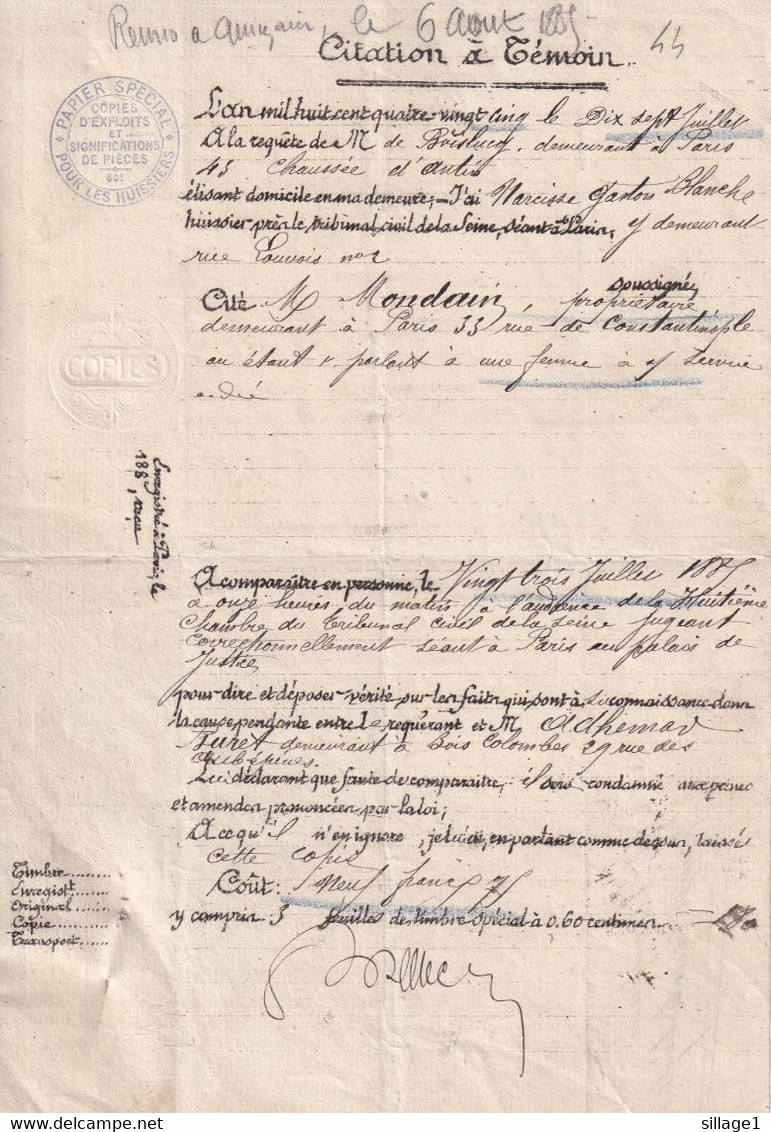 Remis a le 6 Aout 1885
44
Citation à Témoin.
PAPIER SPÉCIAL
COPIES
D'EXPLOITS
ET
SIGNIFICATIONS
DE PIÈCES
60c
POUR LES HUISSIERS
L'an mil huit cent quatre-vingt cinq le Dix sept Juillet
A la requête de M de Boislucy, demeurant à Paris
43 chaussée d'antin
élisant domicile en ma demeure; - J'ai Narcisse Gaston Blanche
huissier près le tribunal civil de la Seine, séant à Paris, y demeurant
rue Louvois no 2
soussigné,
Cité M Mondain, propriétaire
demeurant à Paris 33 rue de Constantinople
où étant & parlant à une femme à service
COPIES
Enregistré à Paris, le
188 , reçu
A comparaître en personne, le Vingt trois Juillet 1885
à onze heures du matin à l'audience de la Huitième
chambre du Tribunal civil de la Seine jugeant
correctionnellement séant à Paris au palais de
Justice
pour dire et déposer vérité sur les faits qui sont à sa connaissance dans
la cause pendante entre le requérant et M Adhemar
Buret demeurant à Bois Colombes 29 rue des
Aubépines.
Lui déclarant que faute de comparaître, il sera condamné aux peines
et amendes prononcées par la loi;
A ce qu'il n'en ignore, je lui ai, en parlant comme dessus, laissé
cette copie
Coût: Neuf francs 75
y compris 3 feuilles de timbre spécial à 0.60 centimes 1.80
Timbre........
Enregistt.......
Original.......
Copie..........
Transport.....
sillage1